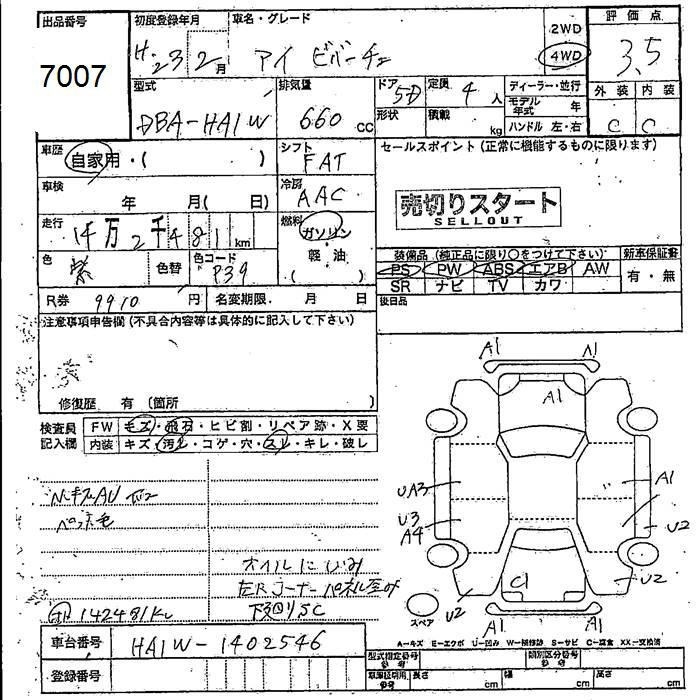 出品番号 7007
初度登録年月 H.23 2月
車名・グレード アイ ビバーチェ
2WD
4WD
評価点 3.5
型式 DBA-HA1W
排気量 660 cc
ドア 5D
形状
定員 4人
積載 kg
ディーラー・並行
モデル年式 年
ハンドル 左・右
外装 内装
C C
車歴 自家用・( )
シフト FAT
セールスポイント (正常に機能するものに限ります)
車検 年 月( 日)
冷房 AAC
売切りスタート
SELLOUT
走行 14万2千481km
燃料 ガソリン
軽油
( )
色 紫 色替 色コード P39
装備品(純正品に限り○をつけて下さい)
新車保証書
PS PW ABS エアB AW
有・無
SR ナビ TV カワ
R券 9910円 名変期限. 月 日
後日品
注意事項申告欄 (不具合内容等は具体的に記入して下さい)
修復歴 有 (箇所 )
検査員記入欄
FW キズ・飛石・ヒビ割・リペア跡・X要
内装 キズ・汚レ・コゲ・穴・スレ・キレ・破レ
オイルにじみ
下回りSC
142481km
A1 A1
A1
UA3 A1
U3
A4 U2
C1
U2 U2
A1 A1
スペア
A―キズ E―エクボ U―凹み W―補修跡 S―サビ C―腐食 XX―交換済
車台番号 HA1W-1402546
登録番号
型式指定番号 参考
類別区分番号 参考
長さ cm 幅 cm 高さ cm